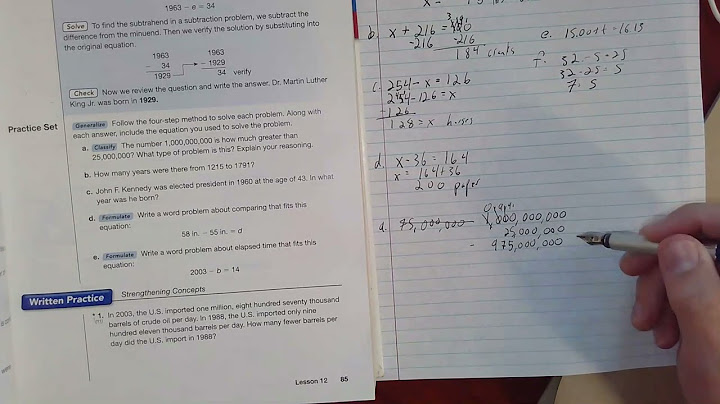 1963 − e = 34
Solve To find the subtrahend in a subtraction problem, we subtract the
difference from the minuend. Then we verify the solution by substituting into
the original equation.
1963 1963
− 34 − 1929
1929 34 verify
Check Now we review the question and write the answer. Dr. Martin Luther
King Jr. was born in 1929.
Practice Set
Generalize Follow the four-step method to solve each problem. Along with
each answer, include the equation you used to solve the problem.
a. Classify The number 1,000,000,000 is how much greater than
25,000,000? What type of problem is this? Explain your reasoning.
b. How many years were there from 1215 to 1791?
c. John F. Kennedy was elected president in 1960 at the age of 43. In what
year was he born?
d. Formulate Write a word problem about comparing that fits this
equation:
58 in. − 55 in. = d
e. Formulate Write a word problem about elapsed time that fits this
equation:
2003 − b = 14
Written Practice Strengthening Concepts
* 1. In 2003, the U.S. imported one million, eight hundred seventy thousand
barrels of crude oil per day. In 1988, the U.S. imported only nine
hundred eleven thousand barrels per day. How many fewer barrels per
day did the U.S. import in 1988?
Lesson 12 85
b. x + 216 = 400
-216 -216
184
e. 15.00 + t = 16.13
f. 32 - 5 = 25
32 - 25 = 5
7 . 5
c. 254 - x = 126
254 - 126 = x
- 126
128 = x
d. x - 36 = 164
x = 164 + 36
200
a. 75,000,000 1,000,000,000
25,000,000
- 975,000,000